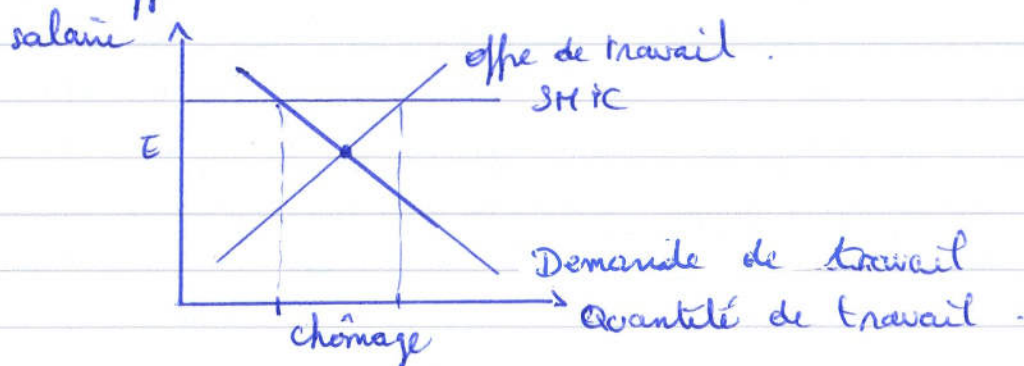 salaire
offre de travail .
SMIC
E
Demande de travail
Quantité de travail .
chômage